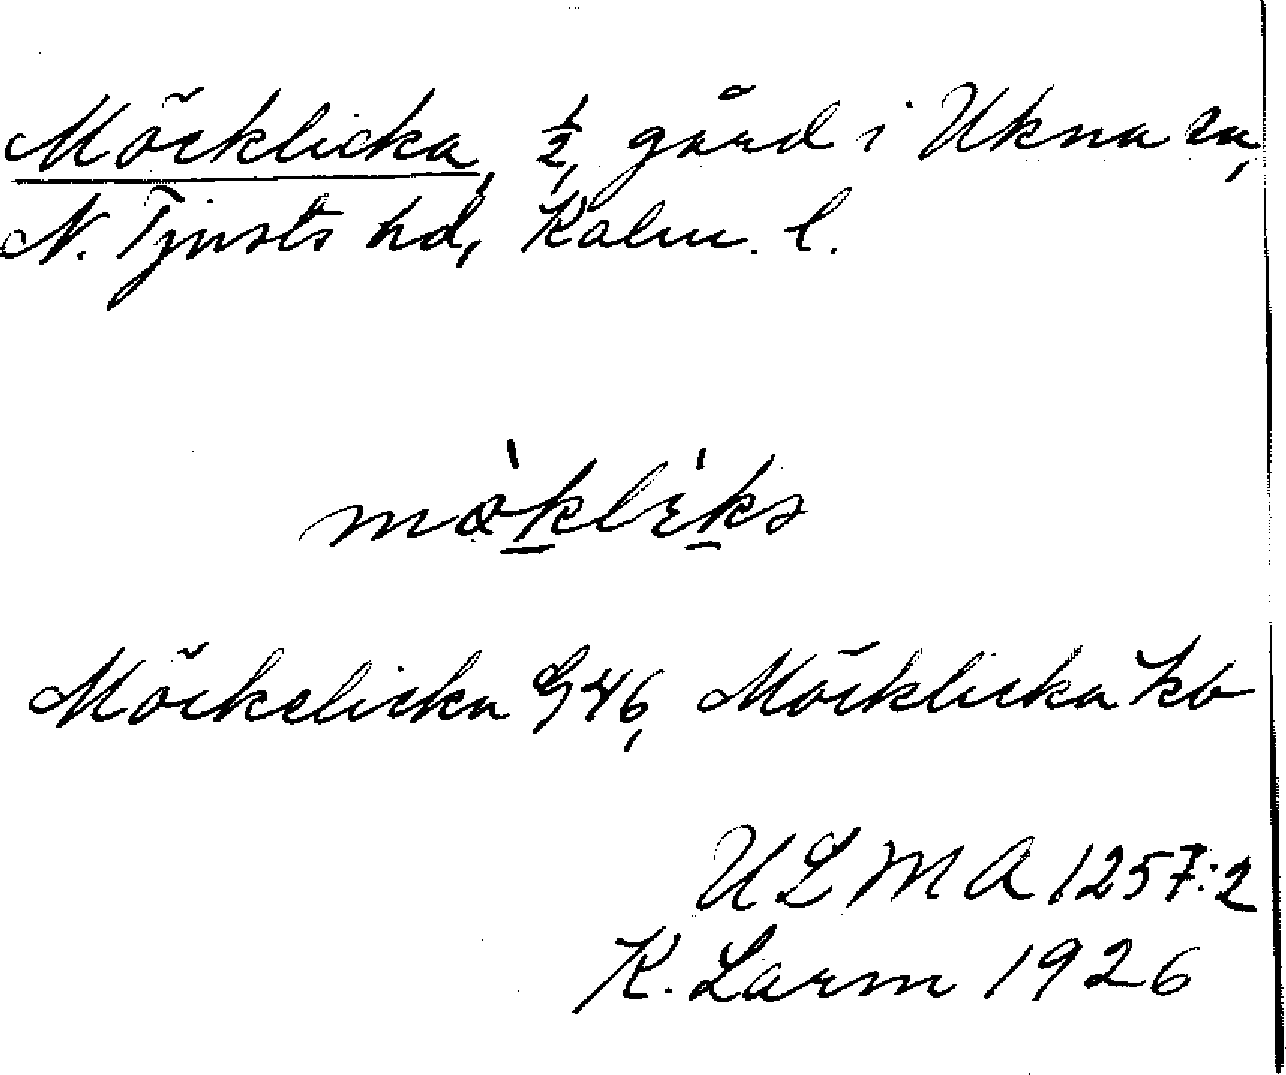 Möcklicka, 1/2, gård i Ukna sn,
N. Tjusts hd, Kalm. l.
Möckelicka 46, Möcklicka kb
ULMA 1257:2
K. Larm 1926